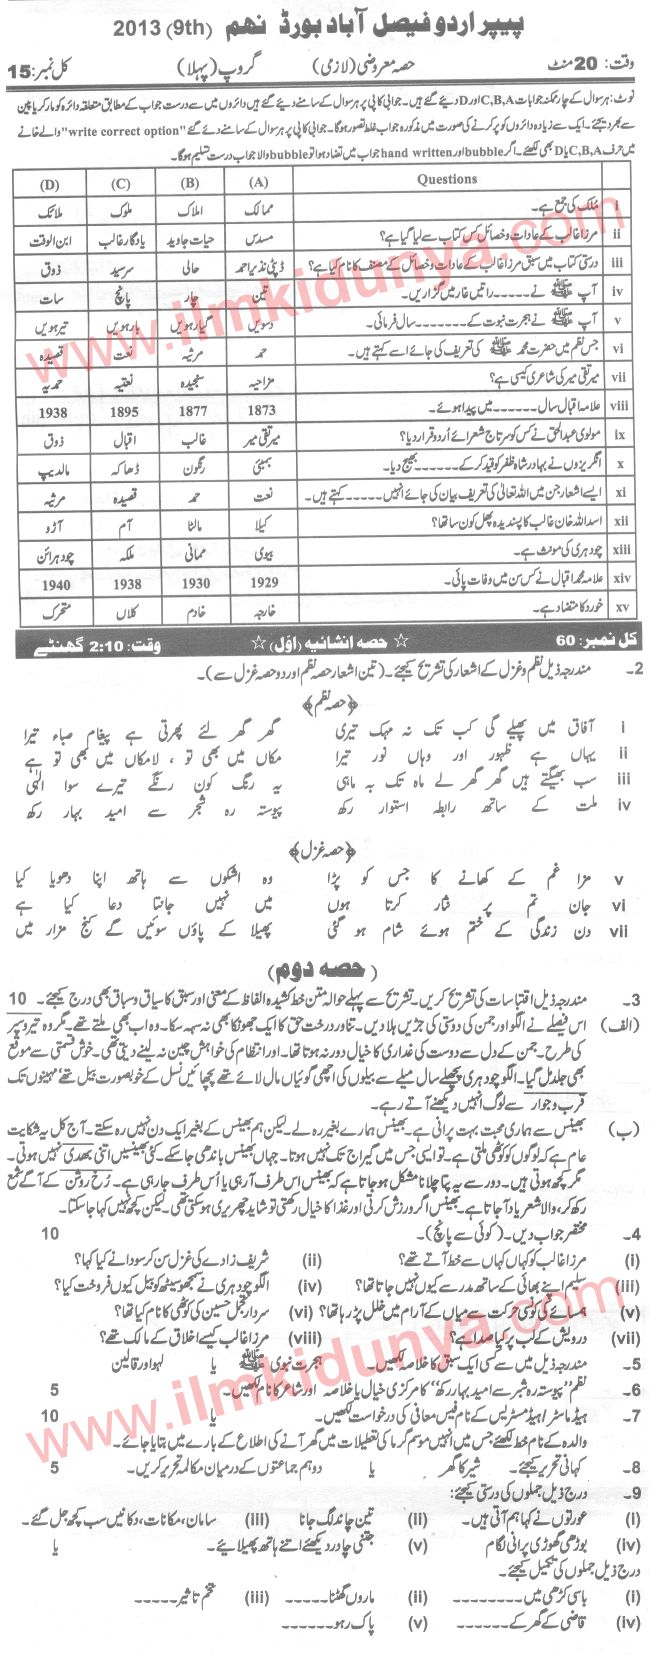 پیپر اردو فیصل آباد بورڈ نہم (9th) 2013
وقت: 20 منٹ حصہ معروضی (لازمی) گروپ (پہلا) کل نمبر: 15
نوٹ: ہر سوال کے چار ممکنہ جوابات C,B,A اور D دیئے گئے ہیں۔ جوابی کاپی پر ہر سوال کے سامنے دیئے گئے دائروں میں سے درست جواب کے مطابق متعلقہ دائرہ کو مارکر یا پین
سے بھر دیجئے۔ ایک سے زیادہ دائروں کو پر کرنے کی صورت میں مذکورہ جواب غلط تصور ہوگا۔ جوابی کاپی پر ہر سوال کے سامنے دیئے گئے "write correct option" والے خانے
میں حرف C,B,A یا D بھی لکھئے۔ اگر bubble اور hand written جواب میں تضاد ہوا تو bubble والا جواب درست تسلیم ہوگا۔
Questions (A) (B) (C) (D)
i مُلک کی جمع ہے۔ ممالک املاک ملوک ملائک
ii مرزا غالب کے عادات و خصائل کس کتاب سے لیا گیا ہے؟ مسدس حیات جاوید یادگار غالب ابن الوقت
iii درسی کتاب میں سبق مرزا غالب کے عادات و خصائل کے مصنف کا نام کیا ہے؟ ڈپٹی نذیر احمد حالی سرسید ذوق
iv آپ ﷺ نے ----- راتیں غار میں گزاریں۔ تین چار پانچ سات
v آپ ﷺ نے ہجرت نبوت کے ------- سال فرمائی۔ دسویں گیارہویں بارہویں تیرہویں
vi جس نظم میں حضرت محمد ﷺ کی تعریف کی جائے اسے کہتے ہیں۔ حمد مرثیہ نعت قصیدہ
vii میر تقی میر کی شاعری کیسی ہے؟ مزاحیہ سنجیدہ نعتیہ حمدیہ
viii علامہ اقبال سال ------ میں پیدا ہوئے۔ 1873 1877 1895 1938
ix مولوی عبدالحق نے کس کو سرتاج شعرائے اُردو قرار دیا؟ میر تقی میر غالب اقبال ذوق
x انگریزوں نے بہادر شاہ ظفر کو قید کر کے ------- بھیج دیا۔ بمبئی رنگون ڈھاکہ مالدیپ
xi ایسے اشعار جن میں اللہ تعالیٰ کی تعریف بیان کی جائے انہیں ----- کہتے ہیں۔ نعت حمد قصیدہ مرثیہ
xii اسد اللہ خان غالب کا پسندیدہ پھل کون سا تھا؟ کیلا مالٹا آم آڑو
xiii چودھری کی مونث ہے۔ بیوی ممانی ملکہ چودھرائن
xiv علامہ محمد اقبال نے کس سن میں وفات پائی۔ 1929 1930 1938 1940
xv خورد کا متضاد ہے۔ خارجہ خادم کلاں متحرک
کل نمبر: 60 ☆ حصہ انشائیہ (اوّل) ☆ وقت: 2:10 گھنٹے
2۔ مندرجہ ذیل نظم و غزل کے اشعار کی تشریح کیجئے۔ (تین اشعار حصہ نظم اور دو حصہ غزل سے)۔
﴿حصہ نظم﴾
i آفاق میں پھیلے گی کب تک نہ مہک تیری گھر گھر لئے پھرتی ہے پیغام صباء تیرا
ii یہاں ہے ظہور اور وہاں نور تیرا مکاں میں بھی تو ، لامکاں میں بھی تو ہے
iii سب بھیگتے ہیں گھر گھر لے ماہ تک بہ ماہی یہ رنگ کون رنگے تیرے سوا الٰہی
iv ملت کے ساتھ رابطہ استوار رکھ پیوستہ رہ شجر سے امید بہار رکھ
﴿حصہ غزل﴾
v مزا غم کے کھانے کا جس کو پڑا وہ اشکوں سے ہاتھ اپنا دھویا کیا
vi جان تم پر نثار کرتا ہوں میں نہیں جانتا دعا کیا ہے
vii دن زندگی کے ختم ہوئے شام ہو گئی پھیلا کے پاؤں سوئیں گے کنج مزار میں
(حصہ دوم)
3۔ مندرجہ ذیل اقتباسات کی تشریح کریں۔ تشریح سے پہلے حوالہ متن خط کشیدہ الفاظ کے معنی اور سبق کا سیاق و سباق بھی درج کیجئے۔ 10
(الف) اس فیصلے نے الگو اور جمن کی دوستی کی جڑیں ہلا دیں۔ تناور درخت حق کا ایک جھونکا بھی نہ سہہ سکا۔ وہ اب بھی ملتے تھے۔ مگر وہ تیر و سپر
کی طرح۔ جمن کے دل سے دوست کی غداری کا خیال دور نہ ہوتا تھا۔ اور انتقام کی خواہش چین نہ لینے دیتی تھی۔ خوش قسمتی سے موقع
بھی جلد مل گیا۔ الگو چودھری پچھلے سال میلے سے بیلوں کی اچھی گوئیاں مول لائے تھے پچھائیں نسل کے خوبصورت بیل تھے مہینوں تک
قرب و جوار سے لوگ انہیں دیکھنے آتے رہے۔
(ب) بھینس سے ہماری محبت بہت پرانی ہے۔ بھینس ہمارے بغیر رہ لے۔ لیکن ہم بھینس کے بغیر ایک دن نہیں رہ سکتے۔ آج کل یہ شکایت
عام ہے کہ لوگوں کو کوٹھی ملتی ہے۔ تو ایسی جس میں گیراج تک نہیں ہوتا۔ جہاں بھینس باندھی جا سکے۔ کئی بھینسیں اتنی بھدی نہیں ہوتی۔
مگر کچھ ہوتی ہیں۔ دور سے یہ پتا چلانا مشکل ہو جاتا ہے کہ بھینس اس طرف آ رہی یا اُس طرف جا رہی ہے۔ رُخ روشن کے آگے شمع
رکھ کر، والا شعر یاد آجاتا ہے۔ بھینس اگر ورزش کرتی اور غذا کا خیال رکھتی تو شاید چھریری ہو سکتی تھی۔ لیکن کچھ نہیں کہا جا سکتا۔
4۔ مختصر جواب دیں۔ (کوئی سے پانچ)۔ 10
(i) مرزا غالب کو کہاں کہاں سے خط آتے تھے؟ (ii) شریف زادے کی غزل سن کر سودا نے کیا کہا؟
(iii) سلیم اپنے بھائی کے ساتھ مدرسے کیوں نہیں جاتا تھا؟ (iv) الگو چودھری نے سمجھو سیٹھ کو بیل کیوں فروخت کیا؟
(v) ہمسائے کی کونسی حرکت سے میاں کے آرام میں خلل پڑ رہا تھا؟ (vi) سردار تجمل حسین کی کوٹھی کا نام کیا تھا؟
(vii) درویش کے لب پر کیا صدا ہے؟ (viii) مرزا غالب کیسے اخلاق کے مالک تھے؟
5۔ مندرجہ ذیل میں سے کسی ایک سبق کا خلاصہ لکھیں۔ ہجرت نبوی ﷺ یا لہو اور قالین
6۔ نظم "پیوستہ رہ شجر سے امید بہار رکھ" کا مرکزی خیال یا خلاصہ اور شاعر کا نام لکھیں۔ 5
7۔ ہیڈ ماسٹر / ہیڈ مسٹریس کے نام فیس معافی کی درخواست لکھیں۔ یا 10
والدہ کے نام خط لکھئے جس میں انہیں موسم گرما کی تعطیلات میں گھر آنے کی اطلاع کے بارے میں بتایا جائے۔
8۔ کہانی تحریر کیجئے۔ شیر کا گھر یا دو ہم جماعتوں کے درمیان مکالمہ تحریر کریں۔ 5
9۔ درج ذیل جملوں کی درستی کیجئے:
(i) عورتوں نے کہا ہم آتی ہیں۔ (ii) تین چاند لگ جانا (iii) سامان، مکانات، دکانیں سب کچھ جل گئے۔
(iv) بوڑھی گھوڑی پرانی لگام (v) جتنی چادر دیکھئے اتنے ہاتھ پھیلائیے۔ یا
درج ذیل جملوں کی تکمیل کیجئے۔
(i) باسی کڑھی میں --------- (ii) ماروں گھٹنا ------ (iii) تخم تاثیر ------
(iv) قاضی کے گھر کے ------ (v) پاک رہو ------
www.ilmkidunya.com
www.ilmkidunya.com